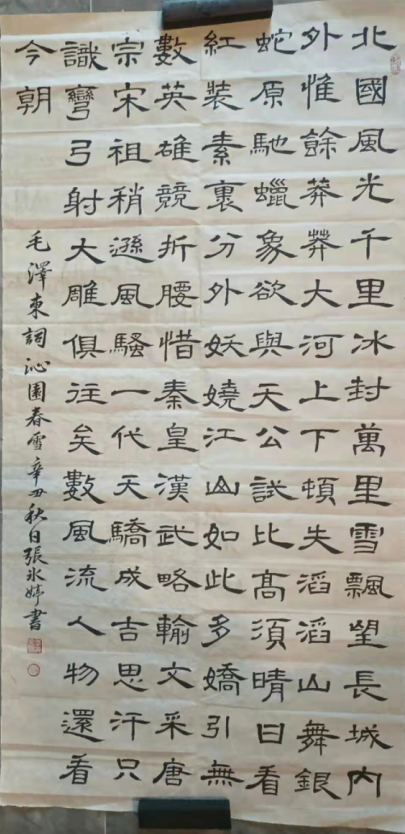 北國風光千里冰封萬里雪飄望長城内
外惟餘莽莽大河上下頓失滔滔山舞銀
蛇原馳蠟象欲與天公試比高須晴日看
紅裝素裹分外妖嬈江山如此多嬌引無
數英雄競折腰惜秦皇漢武略輸文采唐
宗宋祖稍遜風騷一代天驕成吉思汗只
識彎弓射大雕俱往矣數風流人物還看
今朝
毛澤東詞沁園春雪辛丑秋日張氷婷書